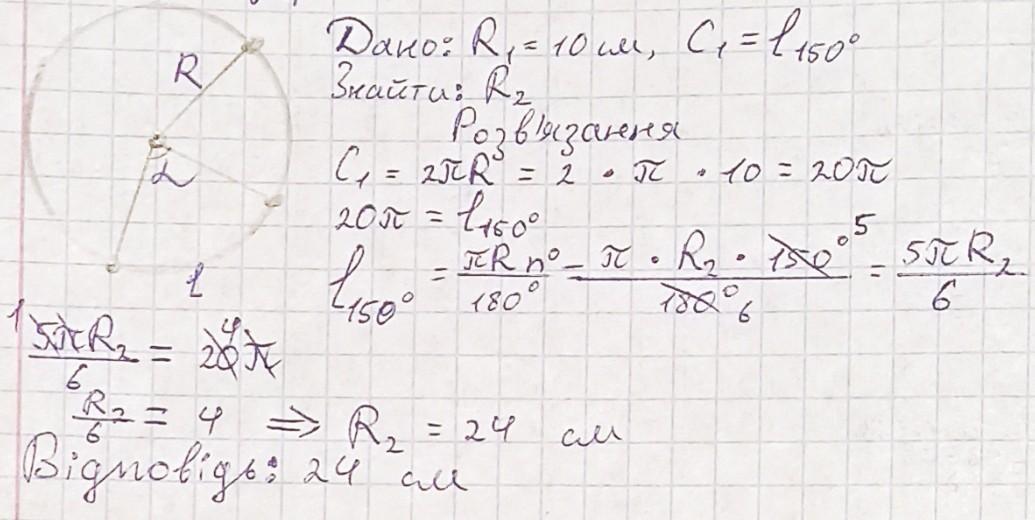 R
α
l
Дано: R₁ = 10 см, C₁ = l₁₅₀°
Знайти: R₂
Розв'язання
C₁ = 2πR = 2 · π · 10 = 20π
20π = l₁₅₀°
l₁₅₀° = πR n° / 180° = π · R₂ · 150° 5 / 180° 6 = 5πR₂ / 6
1 5πR₂ / 6 = 20 4 π
R₂ / 6 = 4 ⇒ R₂ = 24 см
Відповідь: 24 см